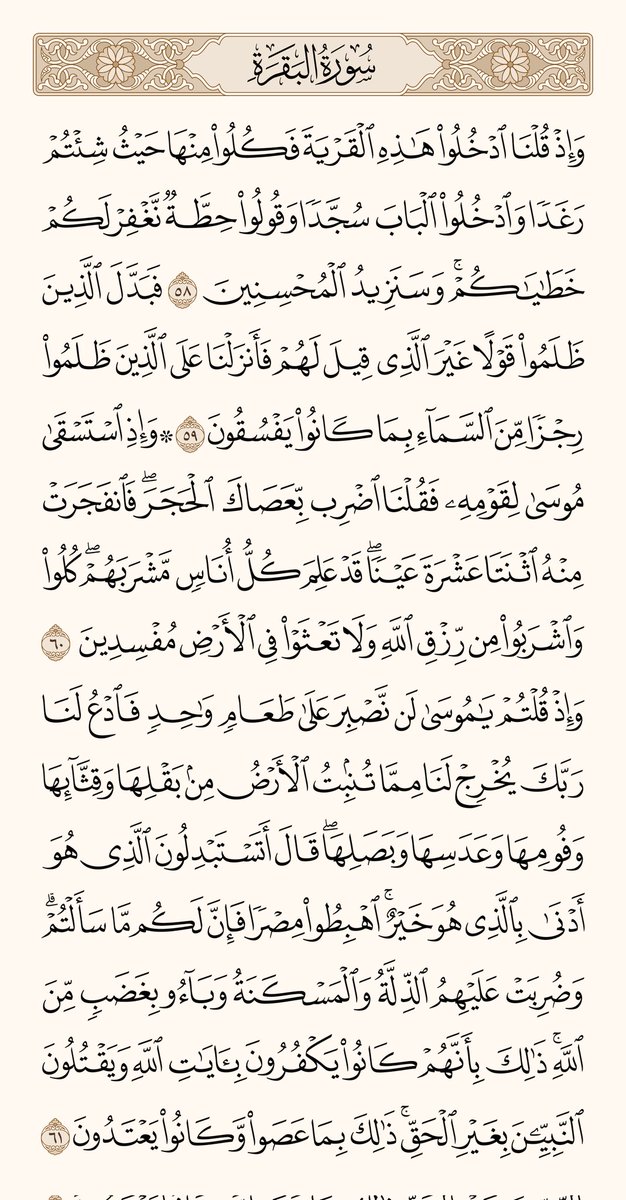 سُورَةُ البَقَرَةِ
وَإِذْ قُلْنَا ٱدْخُلُوا۟ هَـٰذِهِ ٱلْقَرْيَةَ فَكُلُوا۟ مِنْهَا حَيْثُ شِئْتُمْ
رَغَدًا وَٱدْخُلُوا۟ ٱلْبَابَ سُجَّدًا وَقُولُوا۟ حِطَّةٌ نَّغْفِرْ لَكُمْ
خَطَـٰيَـٰكُمْ ۚ وَسَنَزِيدُ ٱلْمُحْسِنِينَ ٥٨ فَبَدَّلَ ٱلَّذِينَ
ظَلَمُوا۟ قَوْلًا غَيْرَ ٱلَّذِى قِيلَ لَهُمْ فَأَنزَلْنَا عَلَى ٱلَّذِينَ ظَلَمُوا۟
رِجْزًا مِّنَ ٱلسَّمَآءِ بِمَا كَانُوا۟ يَفْسُقُونَ ٥٩ ۞ وَإِذِ ٱسْتَسْقَىٰ
مُوسَىٰ لِقَوْمِهِۦ فَقُلْنَا ٱضْرِب بِّعَصَاكَ ٱلْحَجَرَ ۖ فَٱنفَجَرَتْ
مِنْهُ ٱثْنَتَا عَشْرَةَ عَيْنًا ۖ قَدْ عَلِمَ كُلُّ أُنَاسٍ مَّشْرَبَهُمْ ۖ كُلُوا۟
وَٱشْرَبُوا۟ مِن رِّزْقِ ٱللَّهِ وَلَا تَعْثَوْا۟ فِى ٱلْأَرْضِ مُفْسِدِينَ ٦٠
وَإِذْ قُلْتُمْ يَـٰمُوسَىٰ لَن نَّصْبِرَ عَلَىٰ طَعَامٍ وَٰحِدٍ فَٱدْعُ لَنَا
رَبَّكَ يُخْرِجْ لَنَا مِمَّا تُنۢبِتُ ٱلْأَرْضُ مِنۢ بَقْلِهَا وَقِثَّآئِهَا
وَفُومِهَا وَعَدَسِهَا وَبَصَلِهَا ۖ قَالَ أَتَسْتَبْدِلُونَ ٱلَّذِى هُوَ
أَدْنَىٰ بِٱلَّذِى هُوَ خَيْرٌ ۚ ٱهْبِطُوا۟ مِصْرًا فَإِنَّ لَكُم مَّا سَأَلْتُمْ ۗ
وَضُرِبَتْ عَلَيْهِمُ ٱلذِّلَّةُ وَٱلْمَسْكَنَةُ وَبَآءُو بِغَضَبٍ مِّنَ
ٱللَّهِ ۚ ذَٰلِكَ بِأَنَّهُمْ كَانُوا۟ يَكْفُرُونَ بِـَٔايَـٰتِ ٱللَّهِ وَيَقْتُلُونَ
ٱلنَّبِيِّـۧنَ بِغَيْرِ ٱلْحَقِّ ۚ ذَٰلِكَ بِمَا عَصَوا۟ وَّكَانُوا۟ يَعْتَدُونَ ٦١